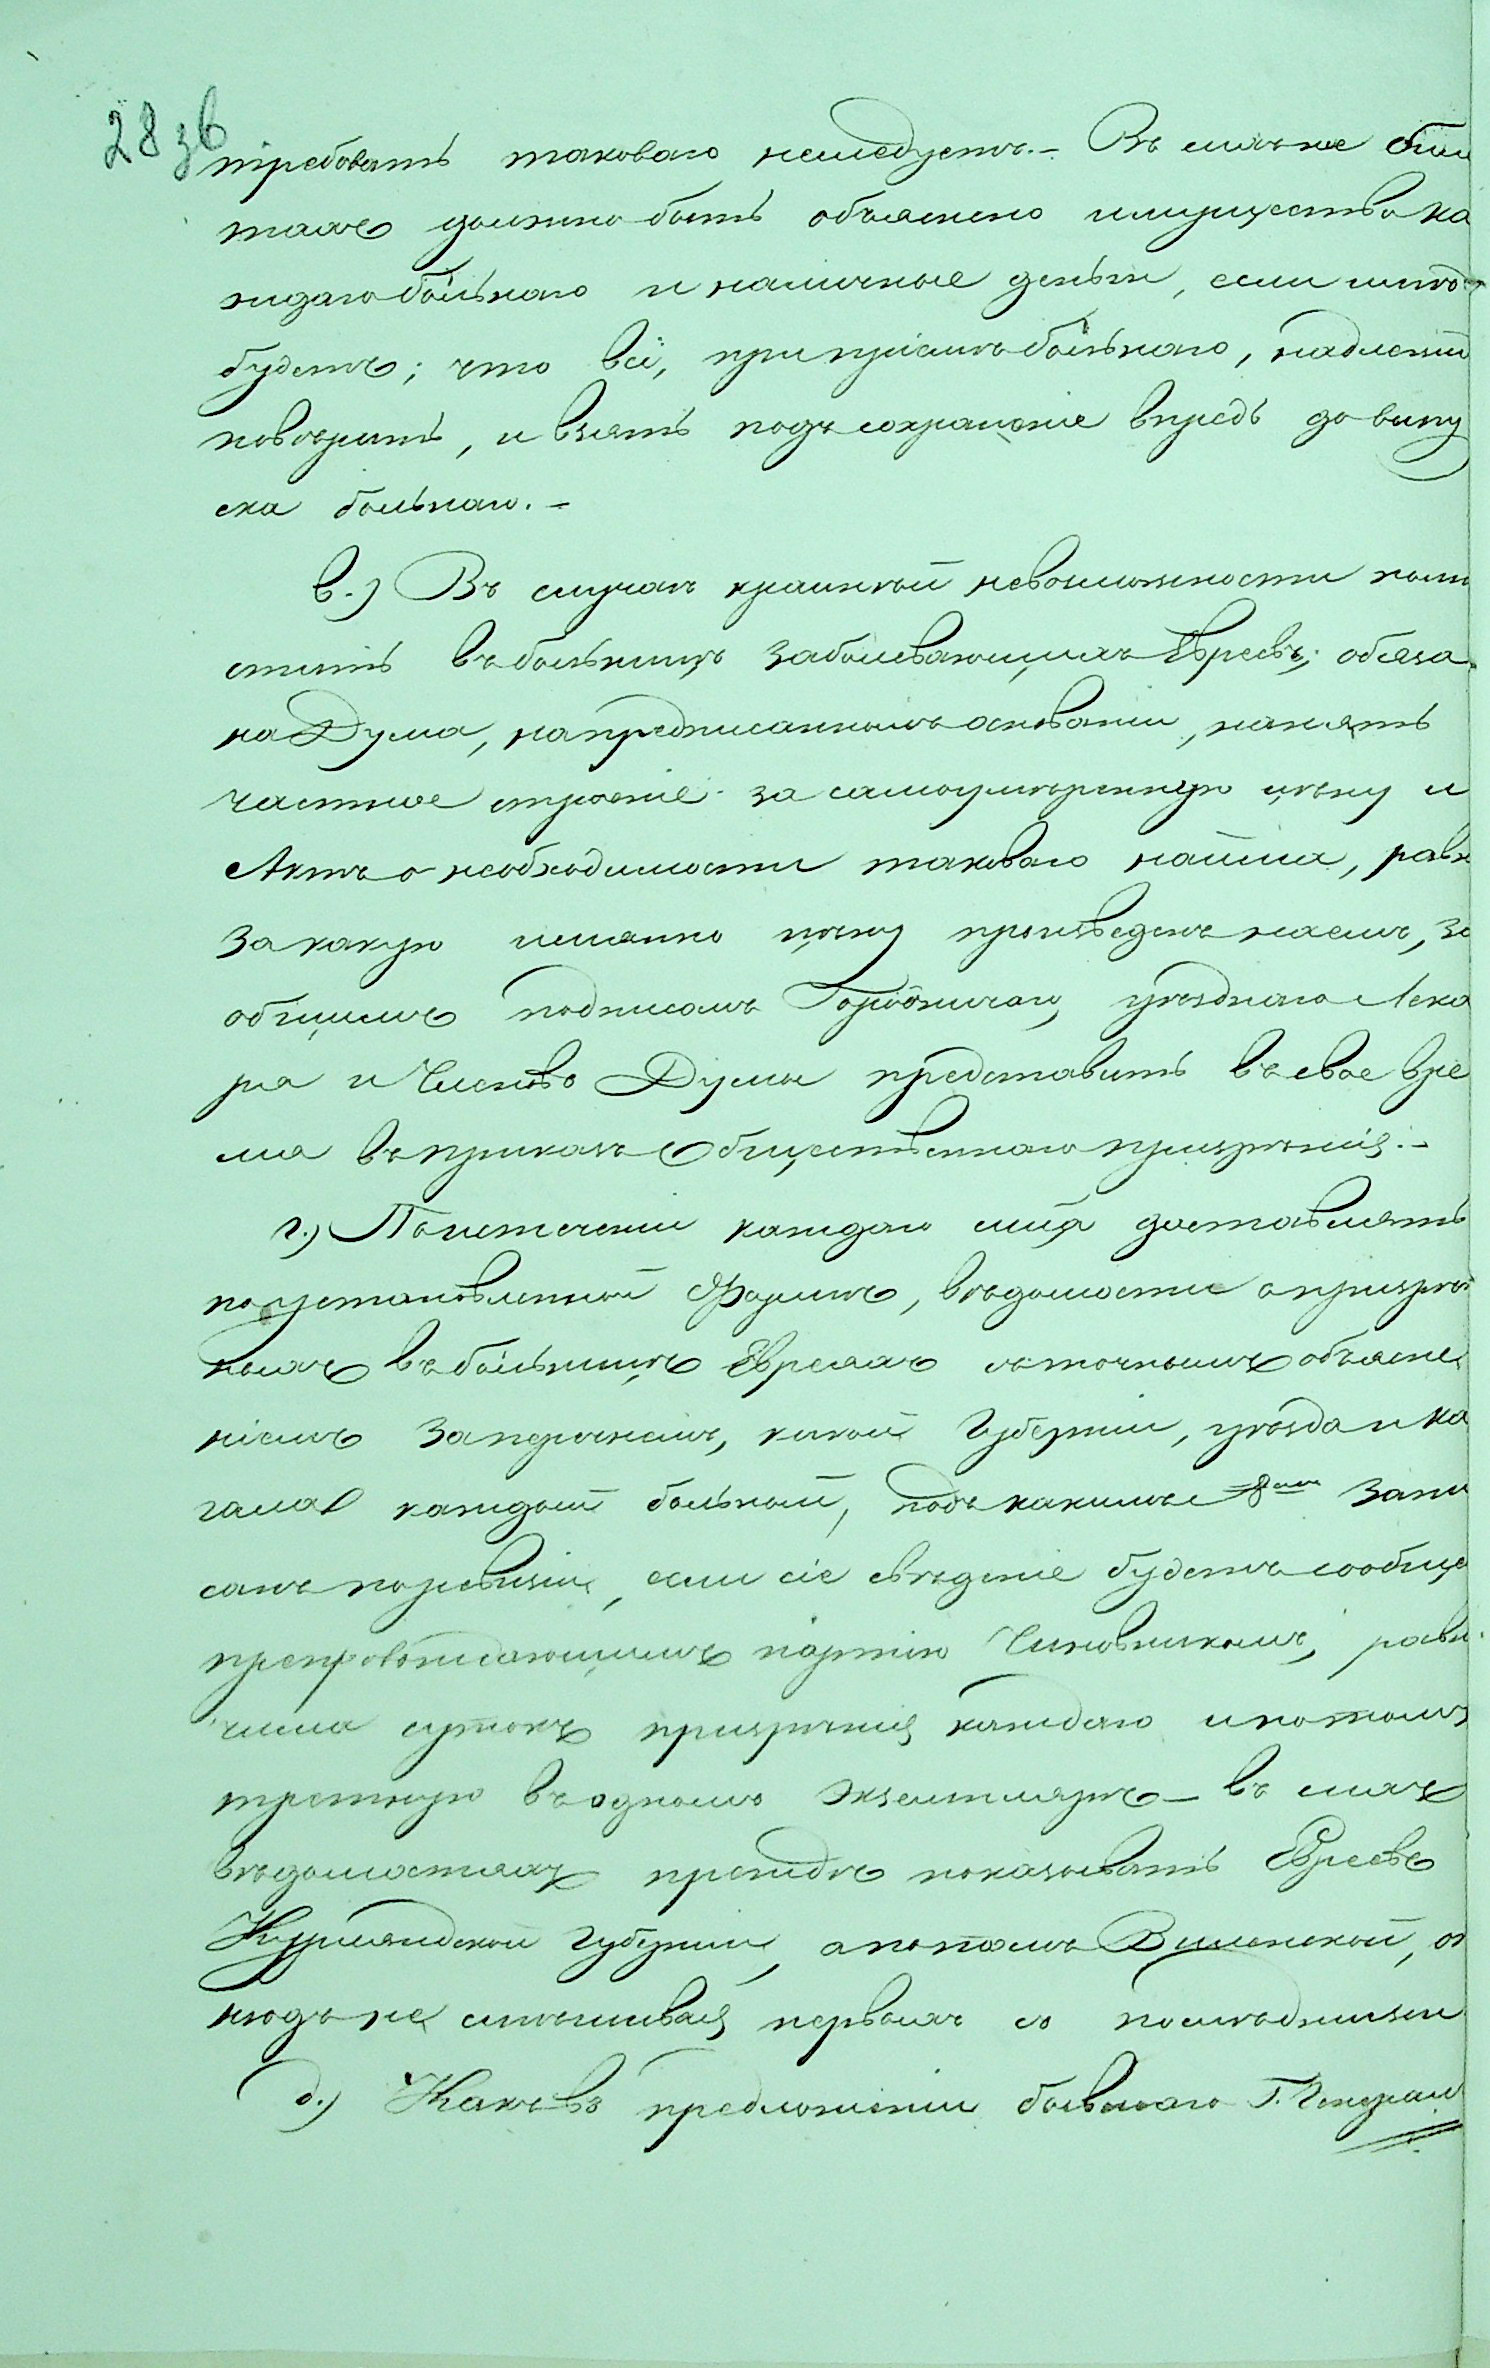 28 зв
требовать таковаго неследуетъ.- Въ сихъ же биле
тахъ должно быть объяснено имущество ка
ждаго больнаго и наличные деньги, если тѣ
будетъ; что всё, при пріемѣ больнаго, надлежитъ
повѣрить, и взять подъ сохраненіе впредь до выпу
ска больнаго.-
в.) Въ случаѣ крайнѣй невозможности помѣ
стить въ больницѣ заболевающихъ Евреевъ; обяза
на Дума, на предписанномъ основаніи, нанять
частное строеніе за самоумѣренную цѣну и
Актъ о необходимости таковаго найма, равно
за какую именно цѣну произведенъ наемъ, за
общимъ подписомъ Городничаго, уѣзднаго Лека
ря и Членовъ Думы представить въ свое вре
мя въ приказъ Общественнаго призрѣнія.-
г.) По истеченіи каждаго м-ца доставлять
по установленной Формѣ, вѣдомости о призрѣн
ныхъ въ больницѣ Евреяхъ съ точнымъ объясне
ніемъ за перечнемъ, какой Губерніи, уѣзда и ка
гала каждый больный, подъ какимъ №омъ запи
санъ по ревизіи, если сіе свѣденіе будетъ сообще
препровождающимъ партію Чиновникомъ, равно
числа сутокъ призрѣнія каждаго и потомъ
третную въ одномъ Экземплярѣ - въ сихъ
вѣдомостяхъ прежде показывать Евреевъ
Курляндской Губерніи, а потомъ Виленской, от
нюдъ не смѣшивая первыхъ съ послѣдними
д.) Какъ въ предложеніи бывшаго Г. Генерал